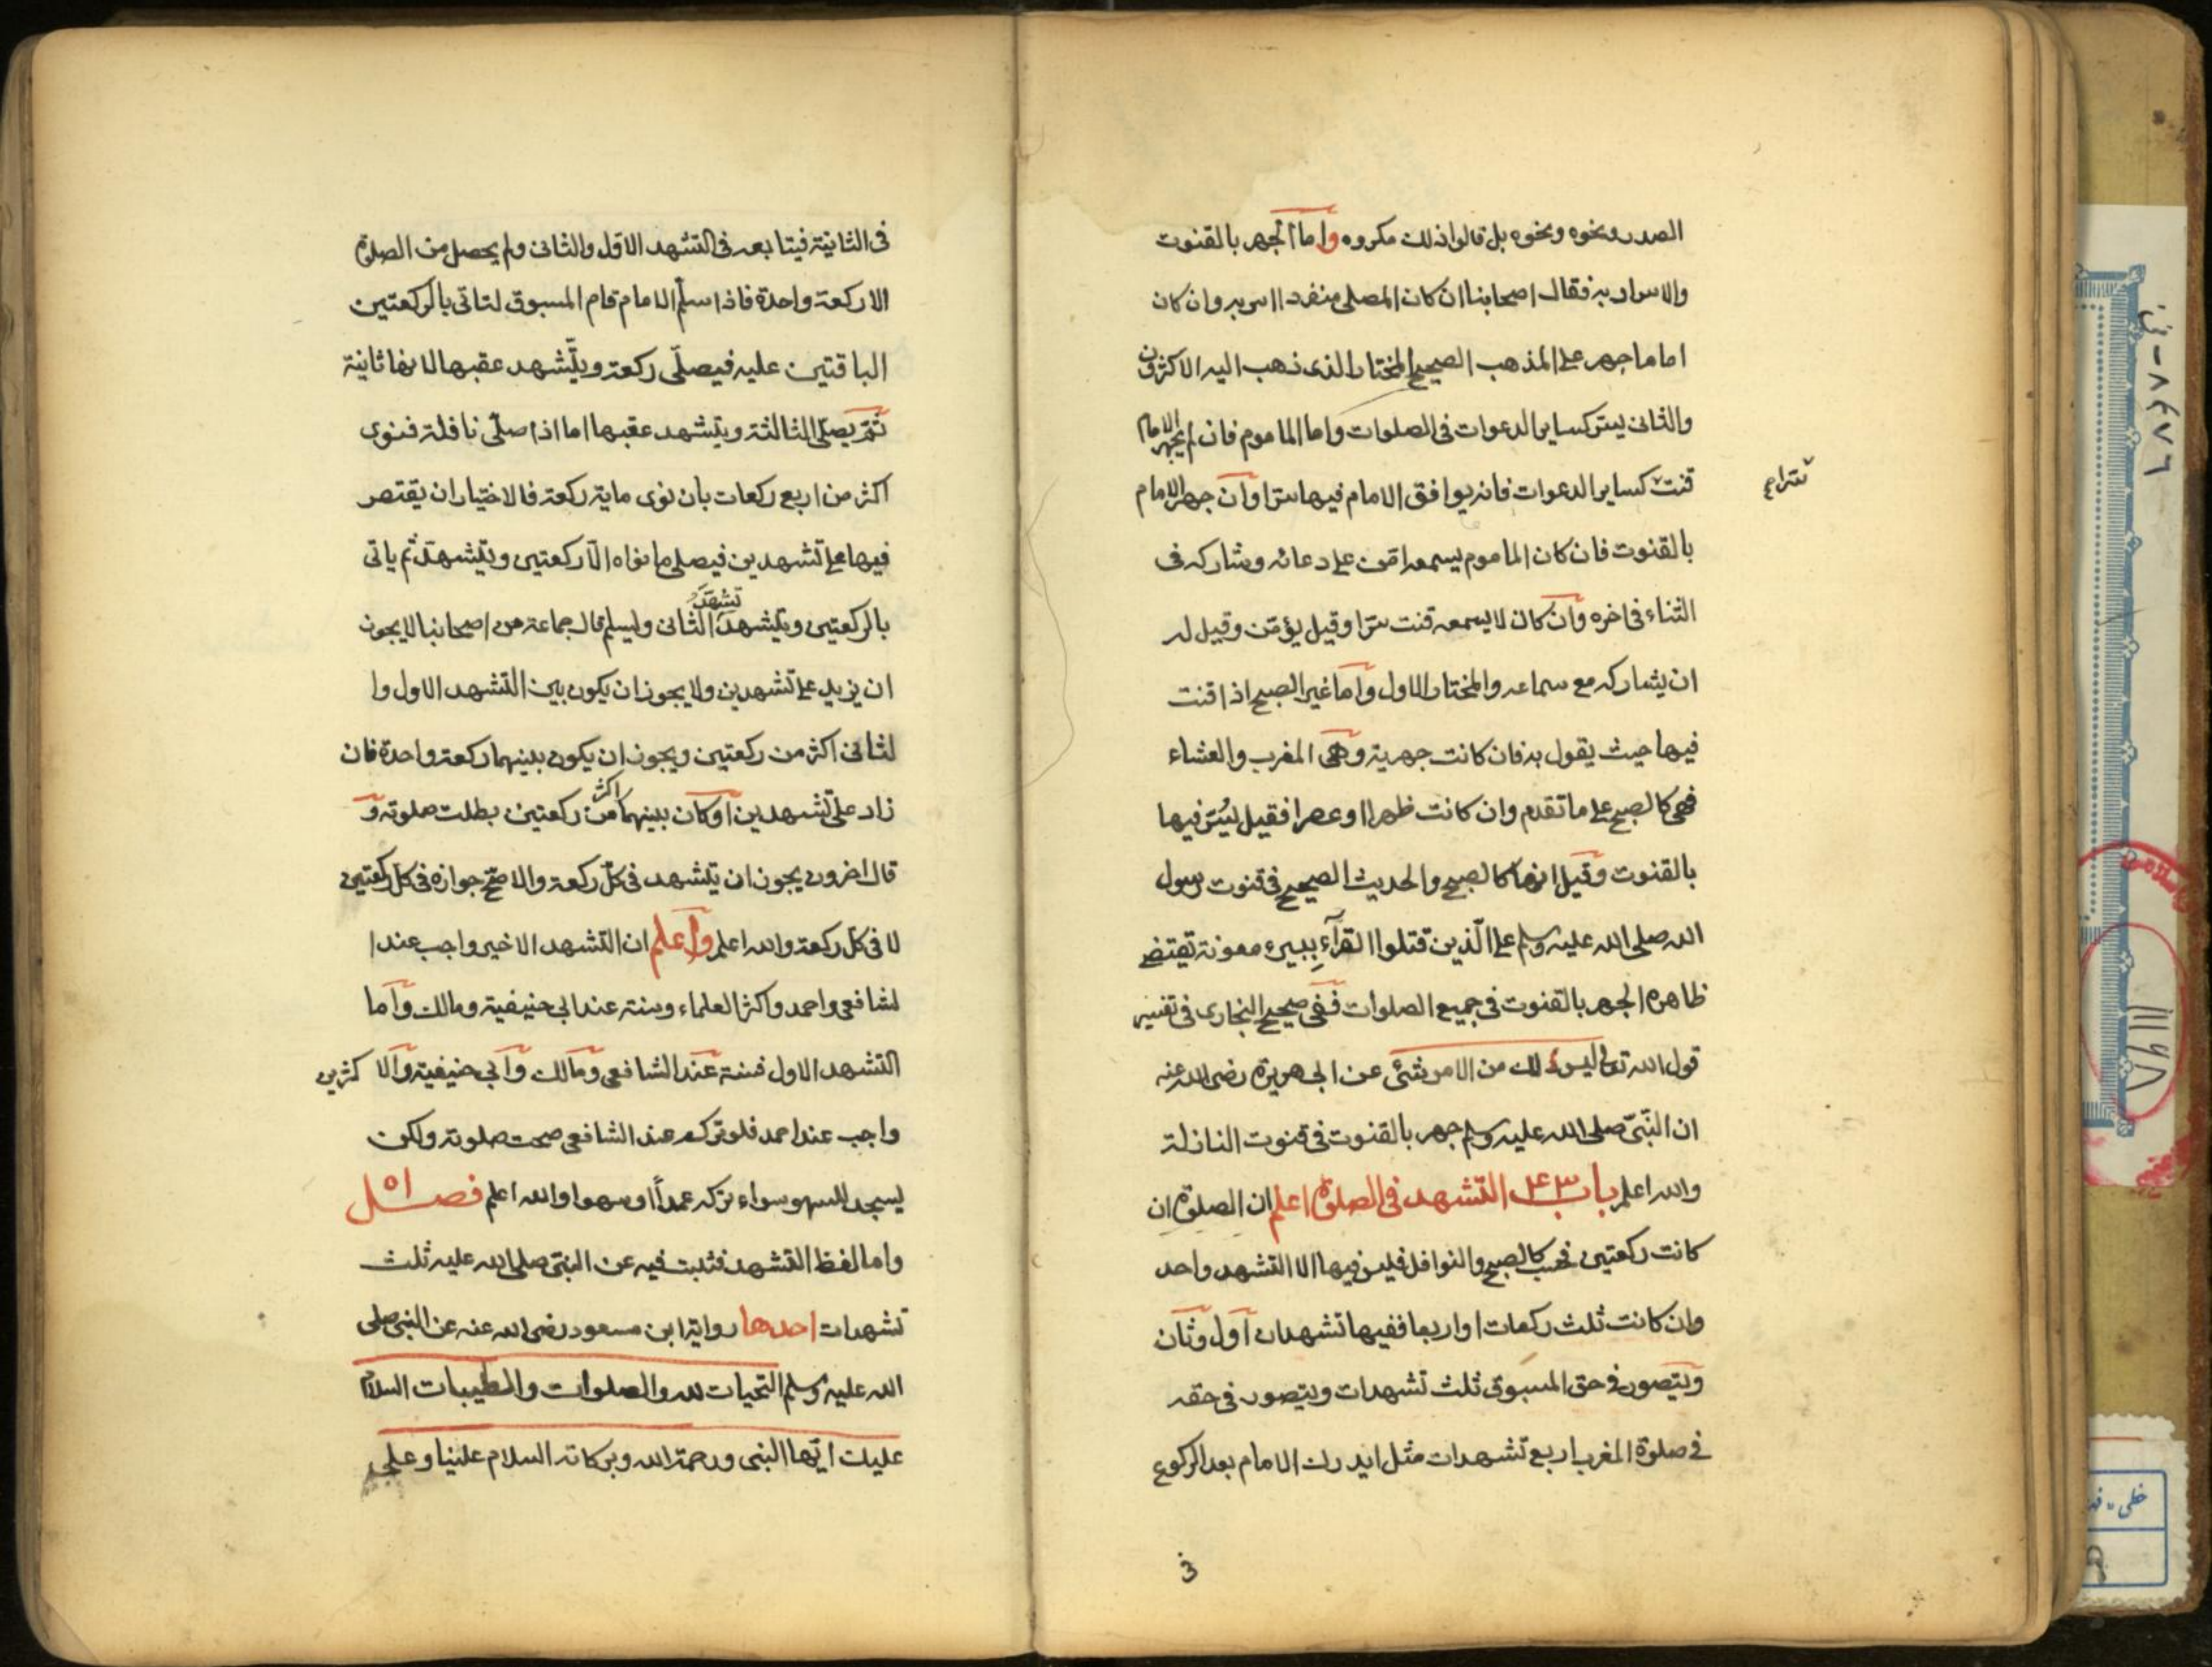 الصدر ونحوه ونحوه بل قالوا ذلك مكروه واما الجهر بالقنوت
والاسرار به فقال اصحابنا ان كان المصلى منفردا اسر به وان كان
اماما جهر على المذهب الصحيح المختار الذى ذهب اليه الاكثرون
والثانى يستر كساير الدعوات فى الصلوات واما الماموم فان لم يجهر الامام
قنت كساير الدعوات فانه يوافق الامام فيها سرا وان جهر الامام
سترا مع
بالقنوت فان كان الماموم يسمعه امّن على دعائه وشاركه فى
الثناء فى اخره وان كان لا يسمعه قنت سرّا وقيل يؤمّن وقيل له
ان يشاركه مع سماعه والمختار الاول واما غير الصبح اذا قنت
فيها حيث يقول به فان كانت جهرية وهى المغرب والعشاء
فهى كالصبح على ما تقدم وان كانت ظهرا او عصرا فقيل يُسّر فيها
بالقنوت وقيل انها كالصبح والحديث الصحيح فى قنوت رسول
الله صلى الله عليه وسلم على الّذين قتلوا القرآء ببير معونة تقتضى
ظاهره الجهر بالقنوت فى جميع الصلوات ففى صحيح البخارى فى تفسير
قول الله تعالى ليس لك من الامر شئ عن ابى هريرة رضى الله عنه
ان النّبىّ صلى الله عليه وسلم جهر بالقنوت فى قنوت النازلة
والله اعلم باب ٤٣ التشهد فى الصلوة اعلم ان الصلوة ان
كانت ركعتين فحسب كالصبح والنوافل فليس فيها الا التشهد واحد
وان كانت ثلث ركعات او اربعا ففيها تشهدان اول وثان
ويتصور فى حق المسبوق ثلث تشهدات ويتصور فى حقه
فى صلوة المغرب اربع تشهدات مثل ان يدرك الامام بعد الركوع
فى
فى الثانية فيتابعه فى التشهد الاوّل والثانى ولم يحصل من الصلوة
الا ركعة واحدة فاذا سلّم الامام قام المسبوق لتاتى بالركعتين
الباقتين عليه فيصلّى ركعة ويتّشهد عقبها لانها ثانية
ثمّ يصلى الثالثة ويتشهد عقبها اما اذا صلّى نافلة فنوى
اكثر من اربع ركعات بان نوى ماية ركعة فالاختيار ان يقتصر
فيها على تشهدين فيصلى ما نواه الّا ركعتين ويتشهد ثم ياتى
بالركعتين ويتشهد تشهد الثانى وليسلم قال جماعة من اصحابنا لا يجوز
ان يزيد على تشهدين ولا يجوز ان يكون بين التشهد الاول وا
لثانى اكثر من ركعتين ويجوز ان يكون بينهما ركعة واحدة فان
زاد على تشهدين او كان بينهما اكثر من ركعتين بطلت صلوته و
قال اخرون يجوز ان يتشهد فى كلّ ركعة والاصحّ جوازه فى كل ركعتين
لا فى كل ركعة والله اعلم واعلم ان التشهد الاخير واجب عند ا
لشافعى واحمد واكثر العلماء وسنة عند ابى حنيفية ومالك واما
التشهد الاول فسنة عند الشافعى ومالك وابى حنيفية والا كثرين
واجب عند احمد فلو تركه عند الشافعى صحت صلوته ولكن
يسجد للسهو سواء تركه عمداً او سهوا والله اعلم فصل ٥١
واما لفظ التشهد فثبت فيه عن النبىّ صلى الله عليه ثلث
تشهدات احدها رواية ابن مسعود رضى الله عنه عن النبى صلى
الله عليه وسلم التحيات لله والصلوات والطيبات السلام
عليك ايّها النبى ورحمة الله وبركاته السلام علينا وعلى
٨٤٧٦
١١١٧٨
خطى